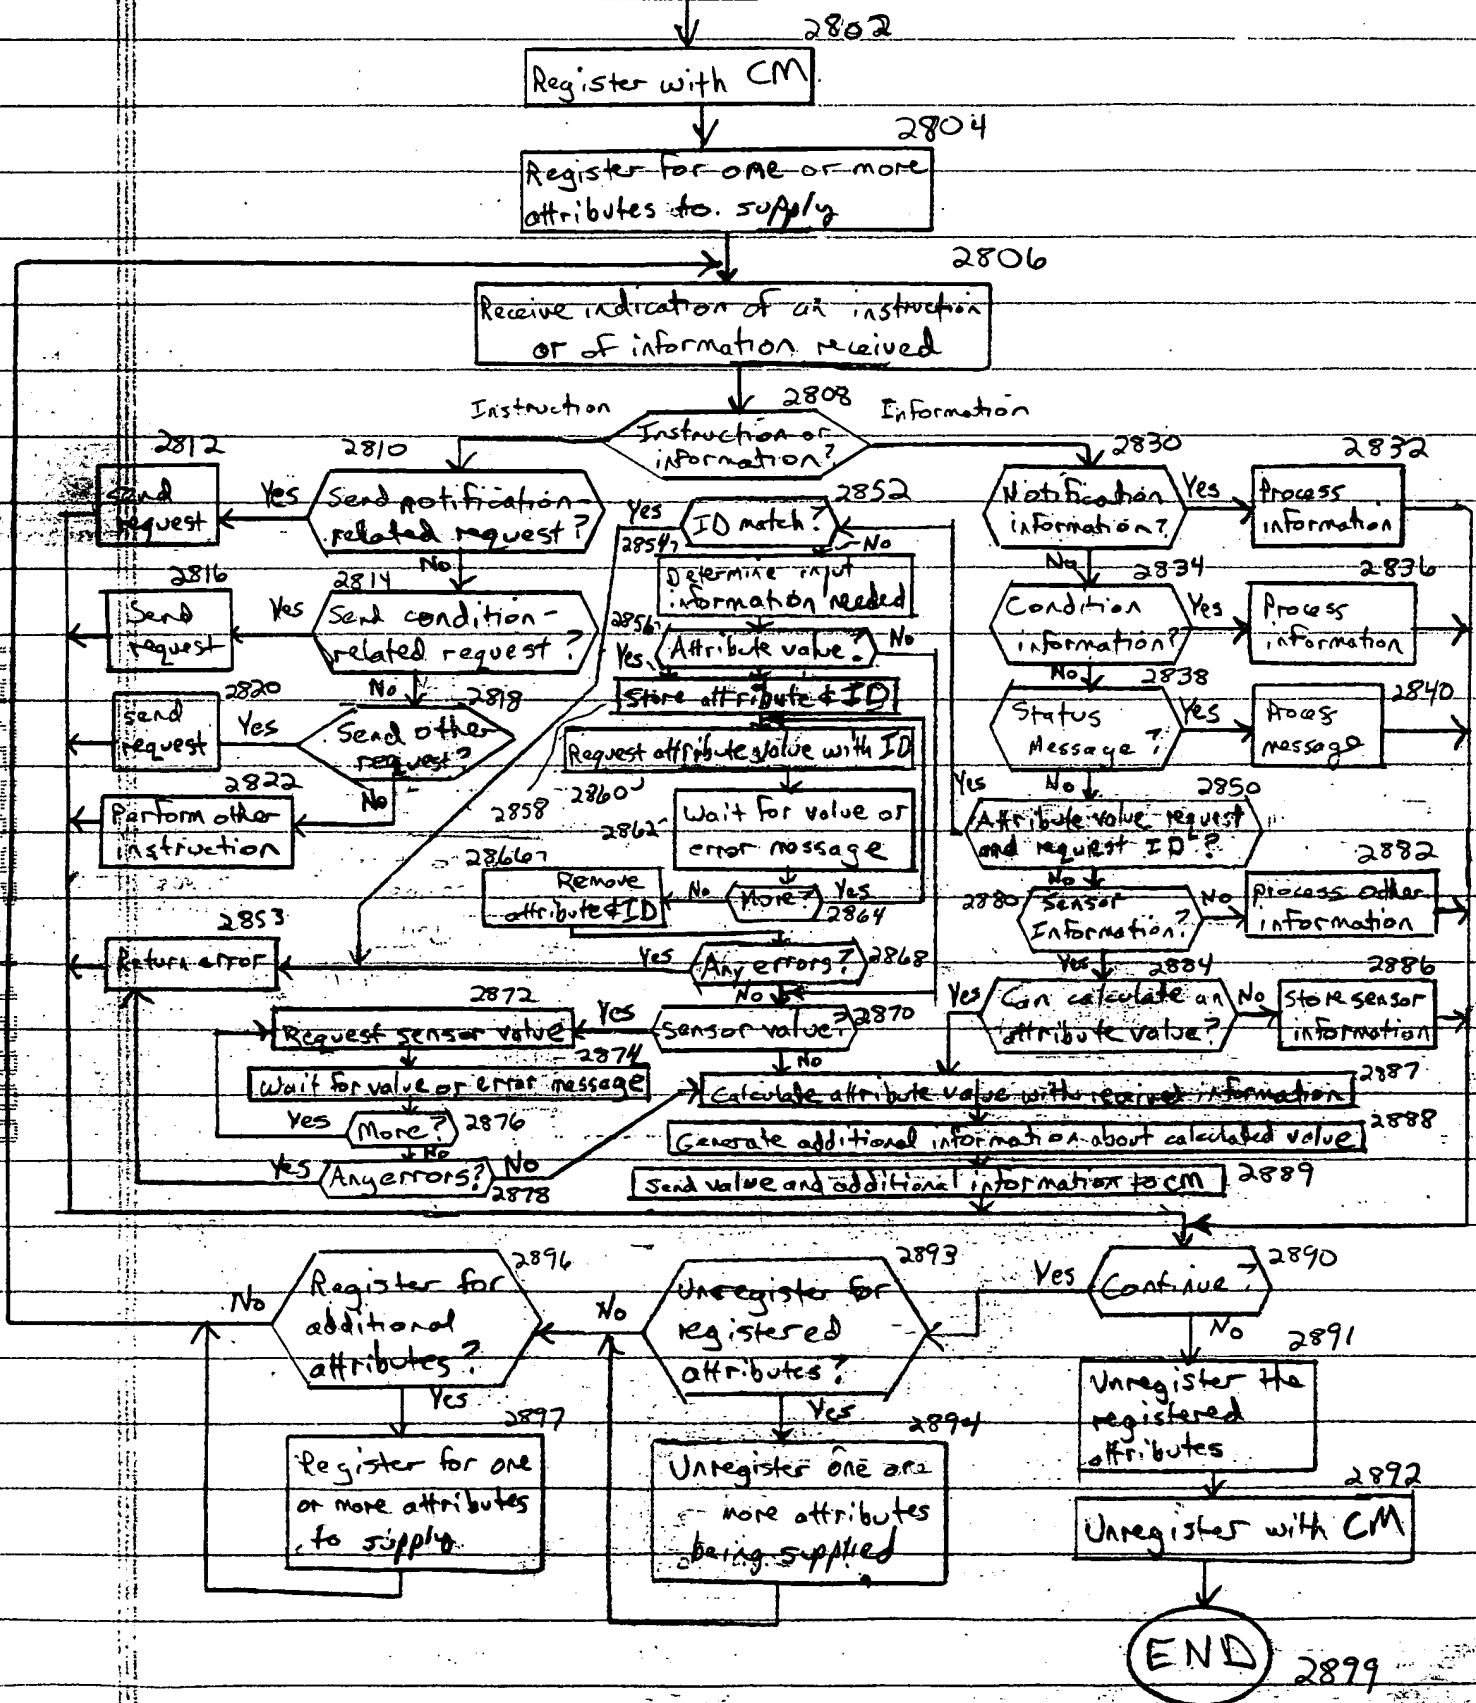 2802
Register with CM
2804
Register for one or more
attributes to supply
2806
Receive indication of an instruction
or of information received
2808
Instruction
Information
Instruction or
information?
2812
Send
request
Yes
2810
Send notification-
related request?
No
2816
Send
request
Yes
2814
Send condition-
related request?
No
2820
send
request
Yes
2818
Send other
request?
No
2822
Perform other
instruction
2852
Yes
ID match?
No
2854
Determine input
information needed
2856
Attribute value?
No
Yes
Store attribute & ID
2858
Request attribute value with ID
2860
2862
Wait for value or
error message
More?
Yes
2864
No
2866
Remove
attribute & ID
2853
Return error
Yes
Any errors?
2868
No
2872
Request sensor value
Yes
Sensor value?
2870
No
2874
Wait for value or error message
Yes
More?
2876
No
Yes
Any errors?
No
2878
2830
Notification
information?
Yes
2832
Process
information
No
2834
Condition
information?
Yes
2836
Process
information
No
2838
Status
Message?
Yes
2840
Process
message
No
2850
Yes
Attribute value request
and request ID?
No
2880
Sensor
Information?
No
2882
Process other
information
Yes
2884
Yes
Can calculate an
attribute value?
No
2886
Store sensor
information
2887
Calculate attribute value with received information
2888
Generate additional information about calculated value
Send value and additional information to CM
2889
2890
Continue?
Yes
No
2893
Unregister for
registered
attributes?
No
Yes
2894
Unregister one are
more attributes
being supplied
2896
Register for
additional
attributes?
No
Yes
2897
Register for one
or more attributes
to supply
2891
Unregister the
registered
attributes
2892
Unregister with CM
END
2899